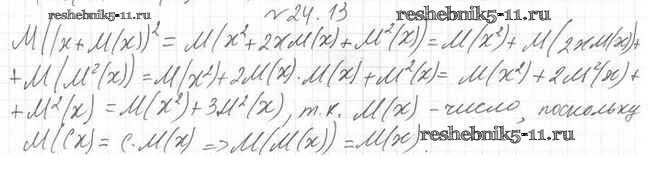 reshebnik5-11.ru №24.13 reshebnik5-11.ru
M((x+M(x))² = M(x²+2xM(x)+M²(x)) = M(x²)+M(2xM(x))+
+M(M²(x)) = M(x²)+2M(x)·M(x)+M²(x) = M(x²)+2M²(x)+
+M²(x) = M(x²)+3M²(x), т.к. M(x) - число, поскольку
M(Cx) = C·M(x) => M(M(x)) = M(x). reshebnik5-11.ru